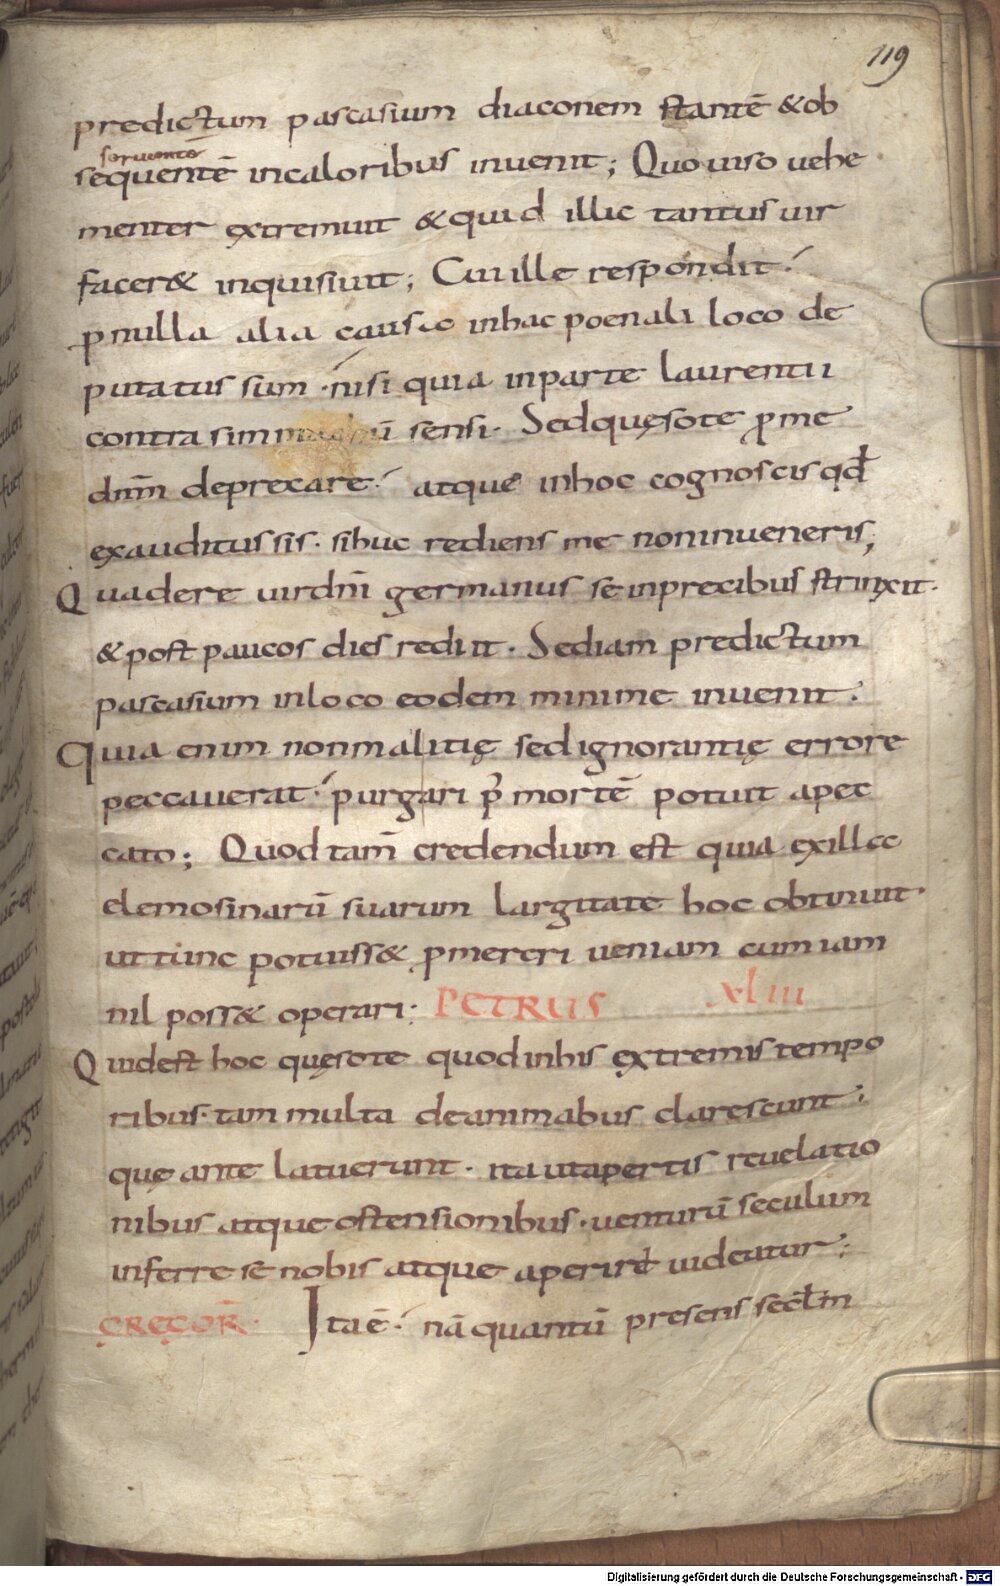 119
predictum pascasium diaconem stantē &ob
seruentē
sequentē incaloribus inuenit; Quo uiso uehe
menter extremuit &quid illic tantus uir
facer& inquisiuit; Cui ille respondit.
p nulla alia causa inhac poenali loco de
putatus sum. nisi quia inparte laurentii
contra simmachū sensi. Sed quęso te p me
dnm̄ deprecare. atque inhoc cognoscis qđ
exauditus sis. si huc rediens me non inueneris;
Qua de re uir dnī germanus se inprecibus strinxit.
&post paucos dies rediit. Sed iam predictum
pascasium inloco eodem minime inuenit.
Quia enim non malitię sed ignorantię errore
peccauerat. purgari p̄ mortē potuit apec
cato; Quod tam̄ credendum est quia exilla
elemosinarū suarum largitate hoc obtinuit.
ut tunc potuiss& pmereri ueniam cum iam
nil poss& operari: PETRUS xliii
Quid est hoc quęso te quod inhis extremis tempo
ribus. tam multa deanimabus clarescunt.
quę ante latuerunt. ita ut apertis reuelatio
nibus atque ostensionibus. uenturū seculum
inferre se nobis atque aperire uideatur;
GREGOR̄. Ita ē. nā quantū presens sec̄lm
Digitalisierung gefördert durch die Deutsche Forschungsgemeinschaft - DFG